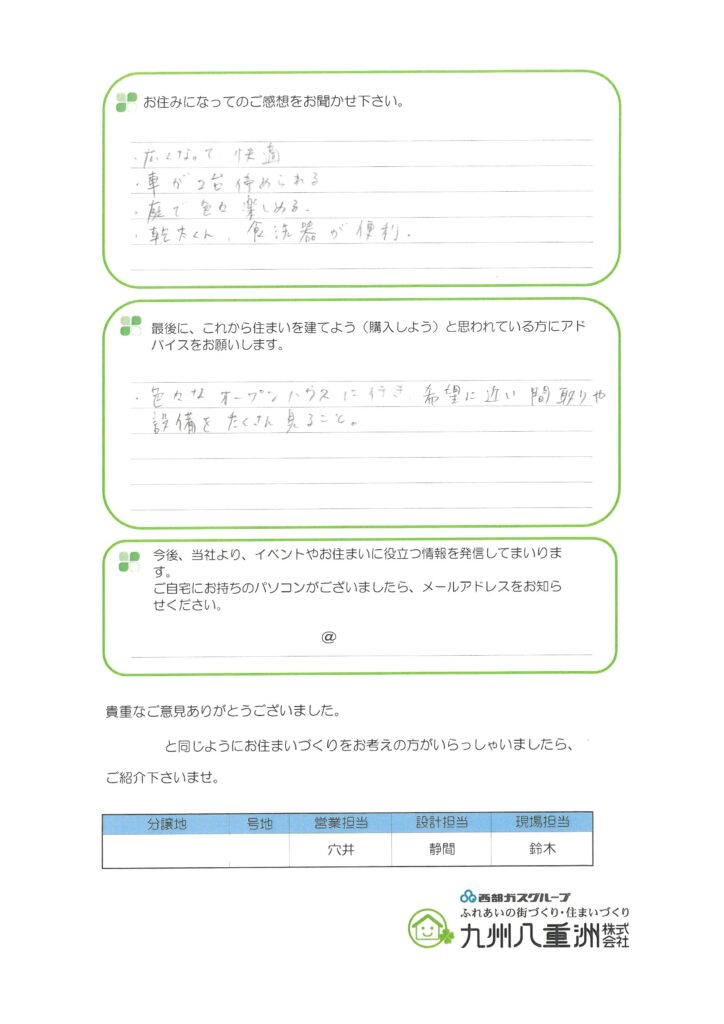 お住みになってのご感想をお聞かせ下さい。
・広くなって 快適
・車が2台停められる
・庭で色々楽しめる.
・乾太くん、食洗器が便利.
最後に、これから住まいを建てよう（購入しよう）と思われている方にアド
バイスをお願いします。
・色々なオープンハウスに行き、希望に近い間取りや
設備をたくさん見ること。
今後、当社より、イベントやお住まいに役立つ情報を発信してまいりま
す。
ご自宅にお持ちのパソコンがございましたら、メールアドレスをお知ら
せください。
@
貴重なご意見ありがとうございました。
と同じようにお住まいづくりをお考えの方がいらっしゃいましたら、
ご紹介下さいませ。
分譲地 号地 営業担当 設計担当 現場担当
穴井 静間 鈴木
西部ガスグループ
ふれあいの街づくり・住まいづくり
九州八重洲株式会社